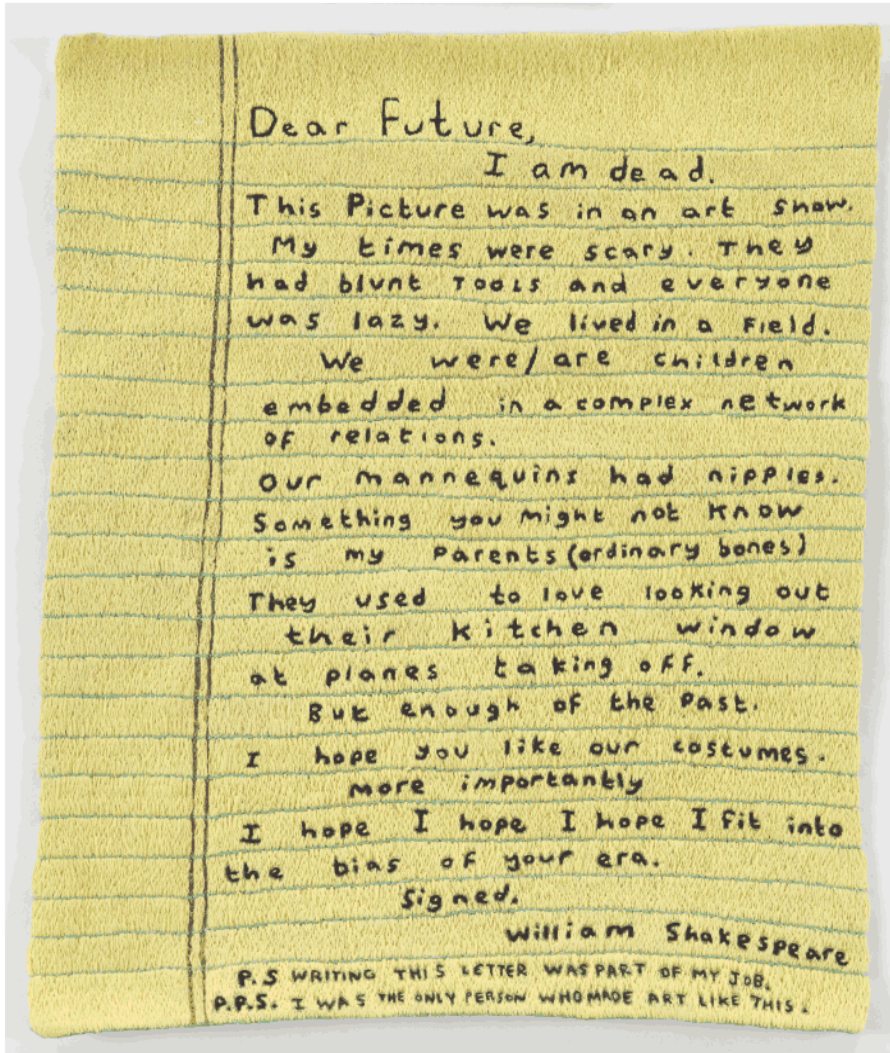 Dear Future,
I am dead.
This Picture was in an art show.
My times were scary. They
had blunt Tools and everyone
was lazy. We lived in a Field.
We were/are children
embedded in a complex network
of relations.
our mannequins had nipples.
Something you might not know
is my Parents (ordinary bones)
They used to love looking out
their kitchen window
at planes taking off.
But enough of the Past.
I hope you like our costumes.
more importantly
I hope I hope I hope I fit into
the bias of your era.
Signed.
William Shakespeare
P.S WRITING THIS LETTER WAS PART OF MY JOB.
P.P.S. I WAS THE ONLY PERSON WHO MADE ART LIKE THIS.